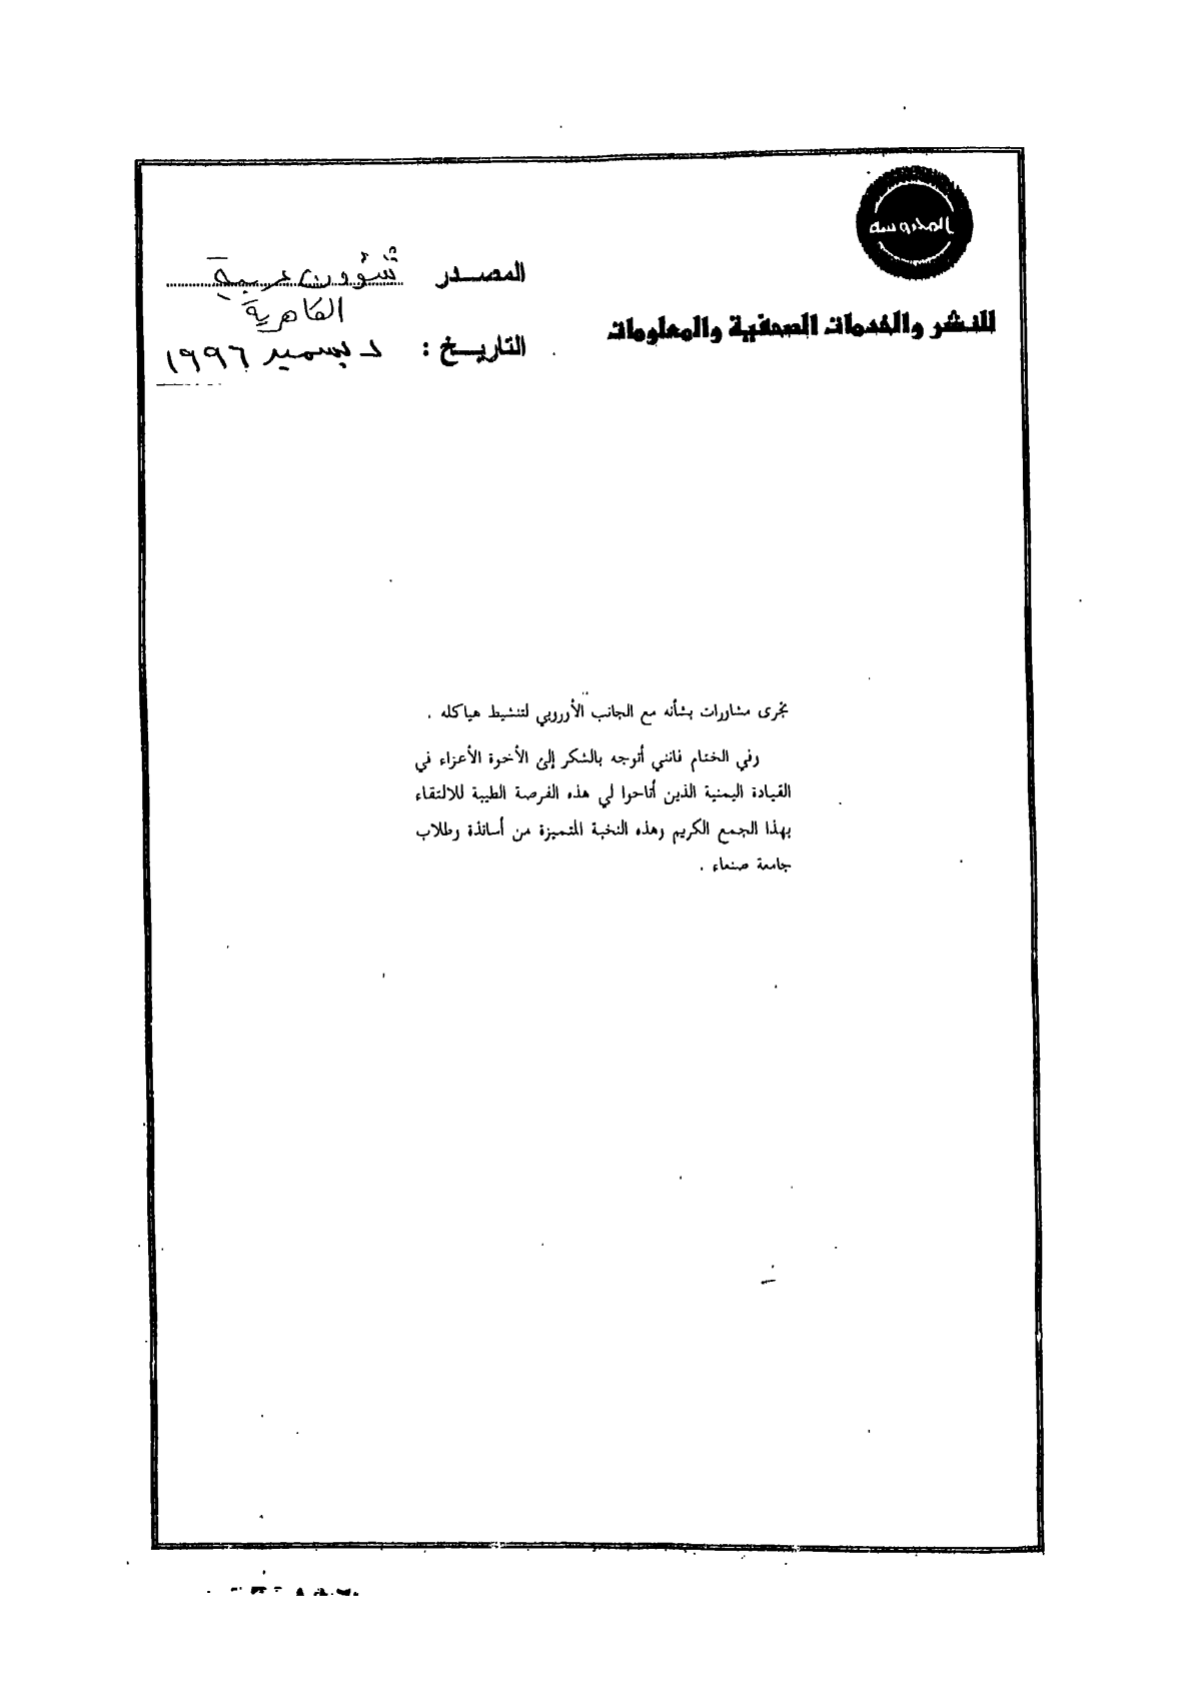 المحروسة
للنشر والخدمات الصحفية والمعلومات
المصدر شئوون عربية
القاهرية
التاريخ : ديسمبر ١٩٩٦
تجرى مشاورات بشأنه مع الجانب الأوروبي لتنشيط هياكله .
وفي الختام فانني أتوجه بالشكر إلى الأخوة الأعزاء في
القيادة اليمنية الذين أتاحوا لي هذه الفرصة الطيبة للالتقاء
بهذا الجمع الكريم وهذه النخبة المتميزة من أساتذة وطلاب
جامعة صنعاء .